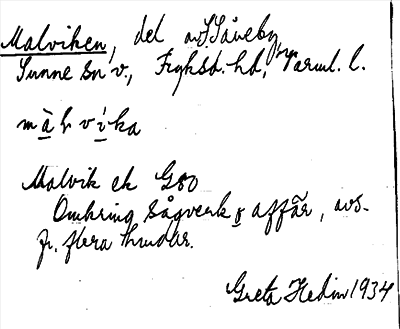 Malviken, del av S. Såneby,
Sunne sn v., Fryksd. hd, Värml. l.
màlvika
Malvik ek G80
Omkring sågverk & affär, avs.
fr. flera
Greta Hedin 1934